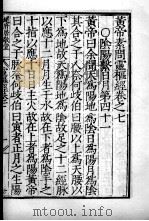 黃帝素問靈樞經卷之七
○陰陽繫日月第四十一
黃帝曰余聞天爲陽地爲陰日爲陽月爲陰
其合之于人奈何歧伯曰腰以上爲天腰以
下爲地故天爲陽地爲陰故足之十二經脉
以應十二月月生于水故在下者爲陰手之
十指以應十日日主火故在上者爲陽黃帝
曰合之于脉奈何歧伯曰寅者正月之生陽